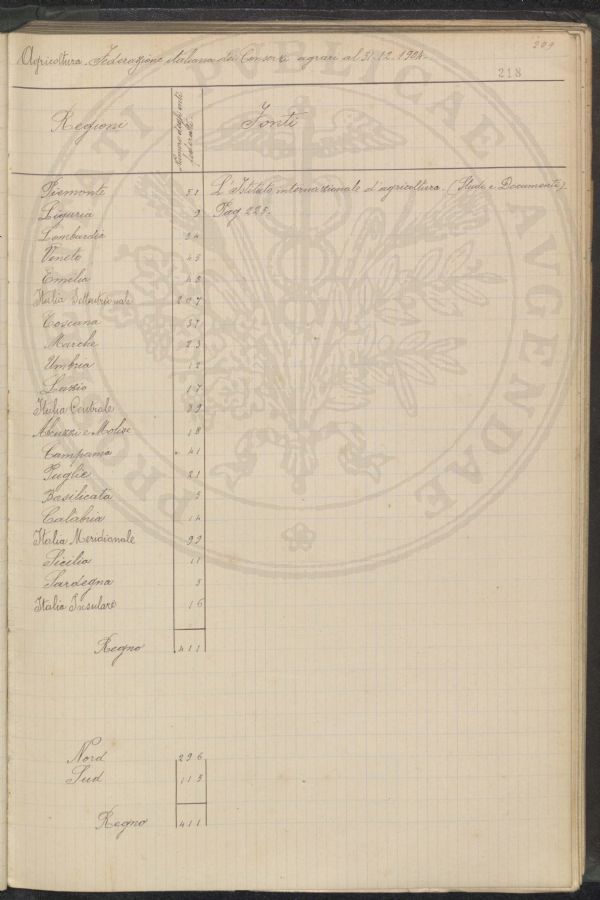 209
Agricoltura. Federazione italiana dei Consorzi agrari al 31.12.1904.
218
Regioni
Numero degli enti federati.
Fonti
Piemonte 51 L'Istituto internazionale d'agricoltura. (Studi e Documenti).
Liguria 9 Pag 225.
Lombardia 54
Veneto 45
Emilia 48
Italia Settentrionale 207
Toscana 37
Marche 23
Umbria 12
Lazio 17
Italia Centrale 89
Abruzzi e Molise 18
Campania 41
Puglie 21
Basilicata 5
Calabria 14
Italia Meridionale 99
Sicilia 11
Sardegna 5
Italia Insulare 16
Regno 411
Nord 296
Sud 115
Regno 411
TI PUBLICAE AVGENDAE PRO